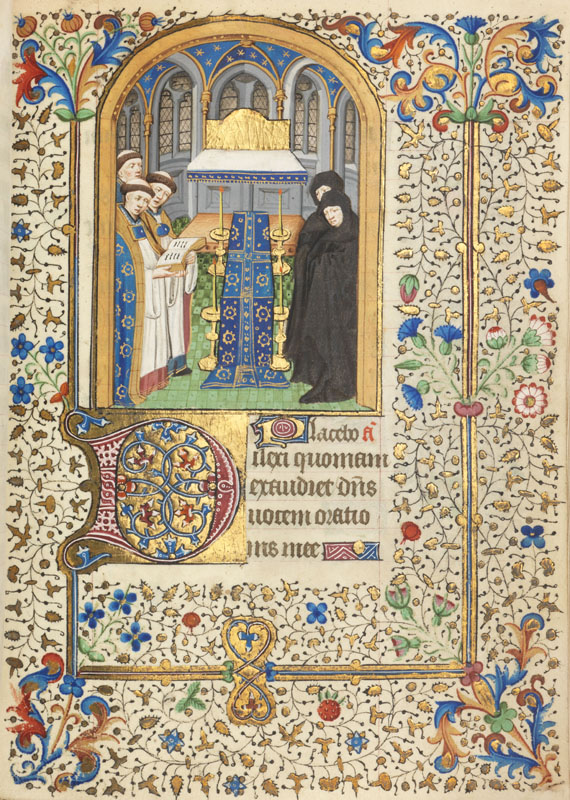 Placebo añ
Dilexi quoniam
exaudiet dñs
uocem oratio
nis mee